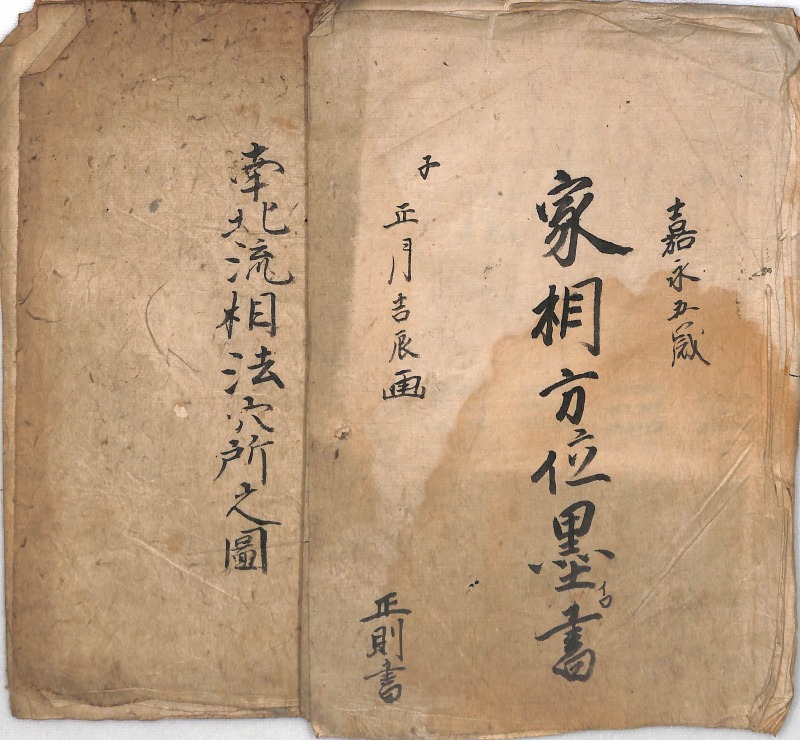 嘉永五歳
家相方位墨書
子
正月吉辰画
正則書
南北流相法穴所之圖